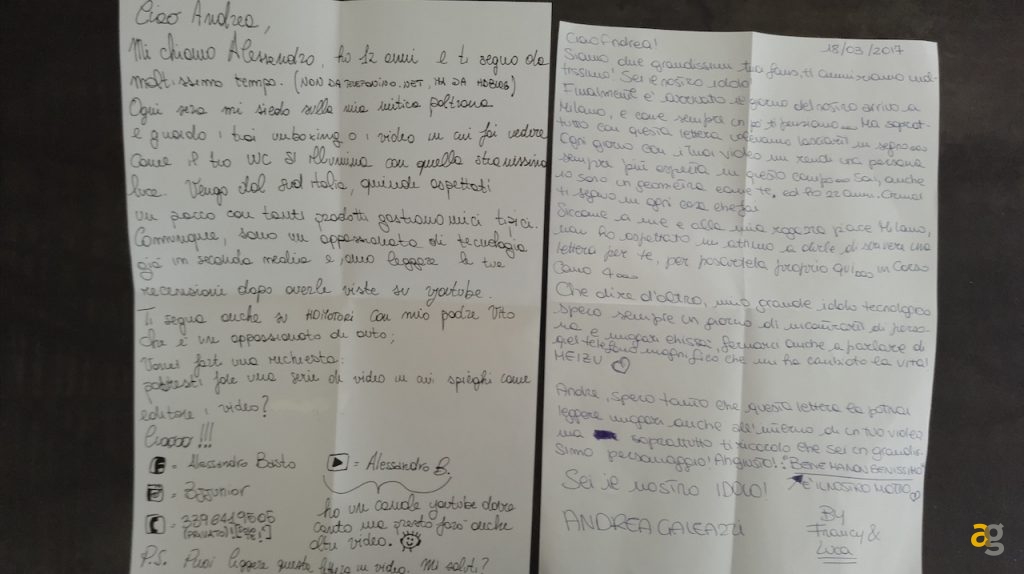 Ciao Andrea,
Mi chiamo Alessandro, ho 12 anni e ti seguo da
moltissimo tempo. (NON DA TREPADINO.NET, MA DA HDBLOG)
Ogni sera mi siedo sulla mia mitica poltrona
e guardo i tuoi unboxing o i video in cui fai vedere
come il tuo WC si illumina con quella stranissima
luce. Vengo dal sud Italia, quindi aspettati
un pacco con tanti prodotti gastronomici tipici.
Comunque, sono un appassionato di tecnologia
già in seconda media e amo leggere le tue
recensioni dopo averle viste su youtube.
Ti seguo anche su HDMOTORI con mio padre Vito
che è un appassionato di auto;
Vorrei farti una richiesta:
potresti fare una serie di video in cui spieghi come
editare i video?
Ciaooo!!!
= Alessandro Basto
= Alessandro B.
ho un canale youtube dove
canto ma presto farò anche
altri video.
P.S. Puoi leggere questa lettera in video. Mi saluti?
18/03/2017
Ciao Andrea!
Siamo due grandissimi tuoi fans, ti ammiriamo mol-
tissimo! Sei il nostro idolo
Finalmente è arrivato il giorno del nostro arrivo a
Milano, e come sempre un po' ti pensiamo... Ma soprat-
tutto con questa lettera volevamo lasciarti un segno...
Ogni giorno con i tuoi video mi rendi una persona
sempre più esperta in questo campo... Sai, anche
io sono un geometra come te, ed ho 22 anni. Ormai
ti seguo in ogni cosa che fai
Siccome a me e alla mia ragazza piace Milano,
non ho aspettato un attimo a dirle di scrivere una
lettera per te, per portartela proprio qui... in Corso
Como 4...
Che dire d'altro, mio grande idolo tecnologico
spero sempre un giorno di incontrarti di perso-
na e magari chissà, fermarci anche a parlare di
quel telefono magnifico che mi ha cambiato la vita!
MEIZU
Andre, spero tanto che questa lettera la potrai
leggere magari anche all'interno di un tuo video
ma soprattutto ti ricordo che sei un grandis-
simo personaggio! Ah giusto! "BENE MA NON BENISSIMO"
È IL NOSTRO MOTTO
Sei il nostro IDOLO!
ANDREA GALEAZZI
BY
Francy &
Luca
ag